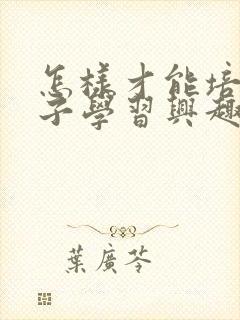 怎樣才能培
子學習興趣
葉廣芩